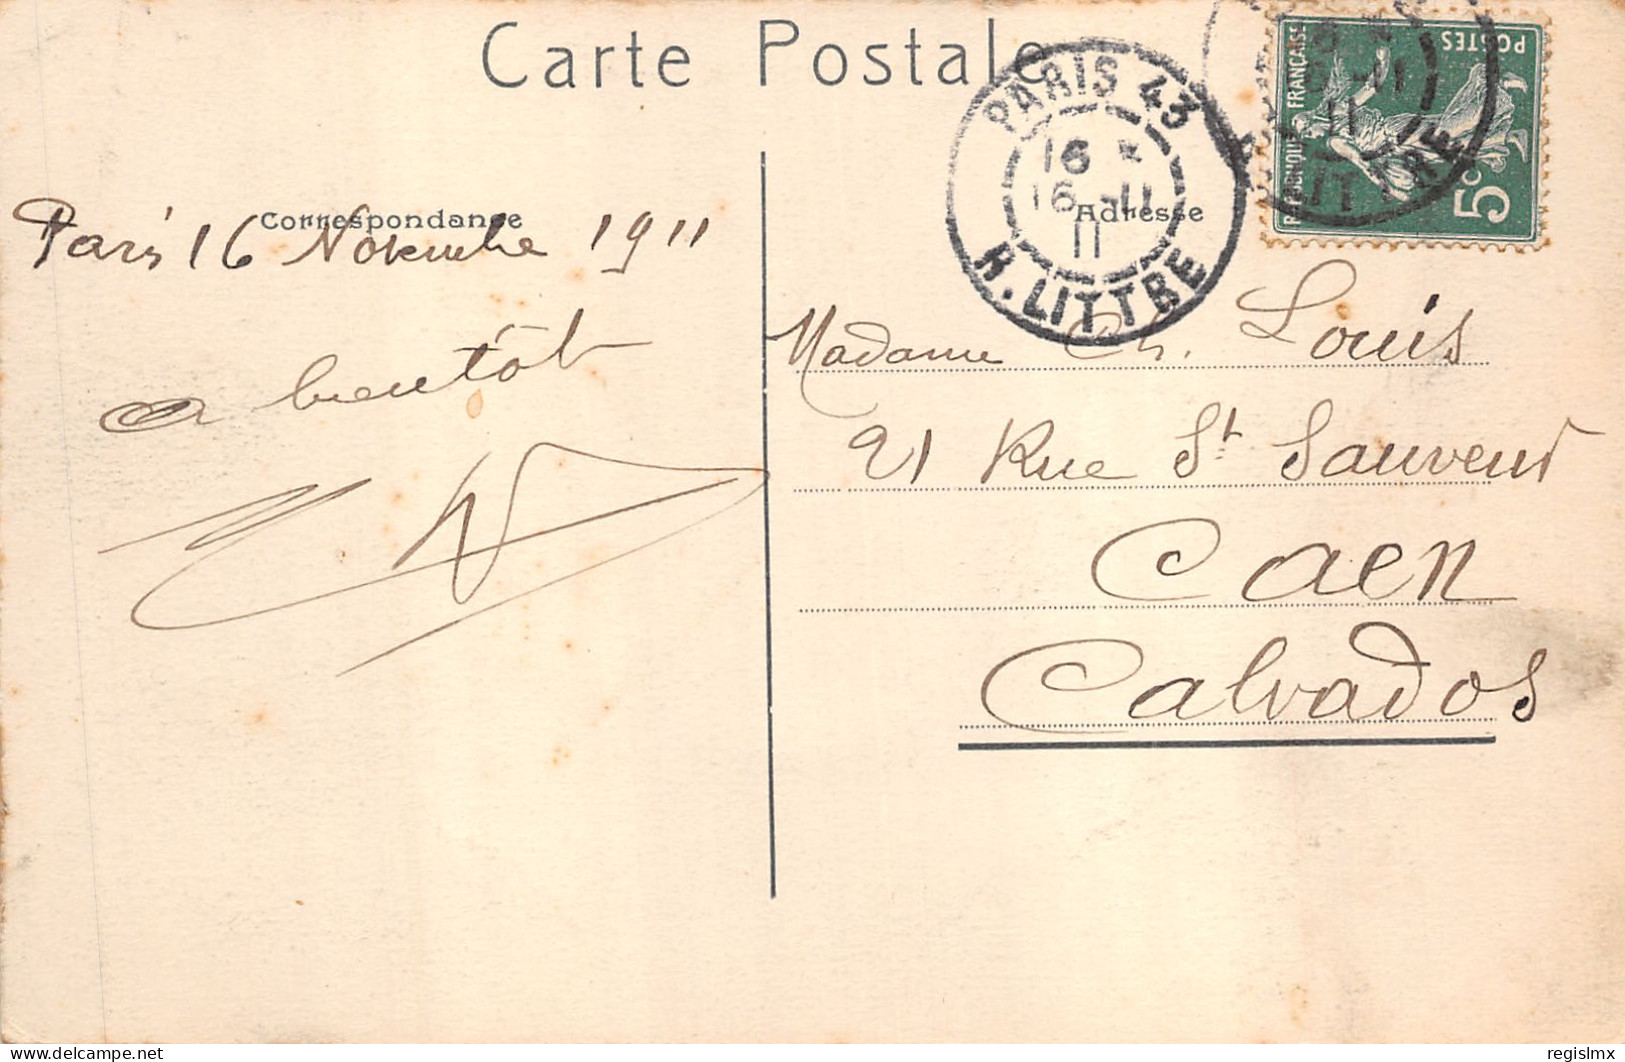 Carte Postale
PARIS 43
16
16 - 11
11
R. LITTRE
REPUBLIQUE FRANÇAISE
POSTES
5c
Correspondance
Adresse
Paris 16 Novembre 1911
a bientôt
Madame Ch. Louis
21 Rue St Sauveur
Caen
Calvados
www.delcampe.net
regislmx